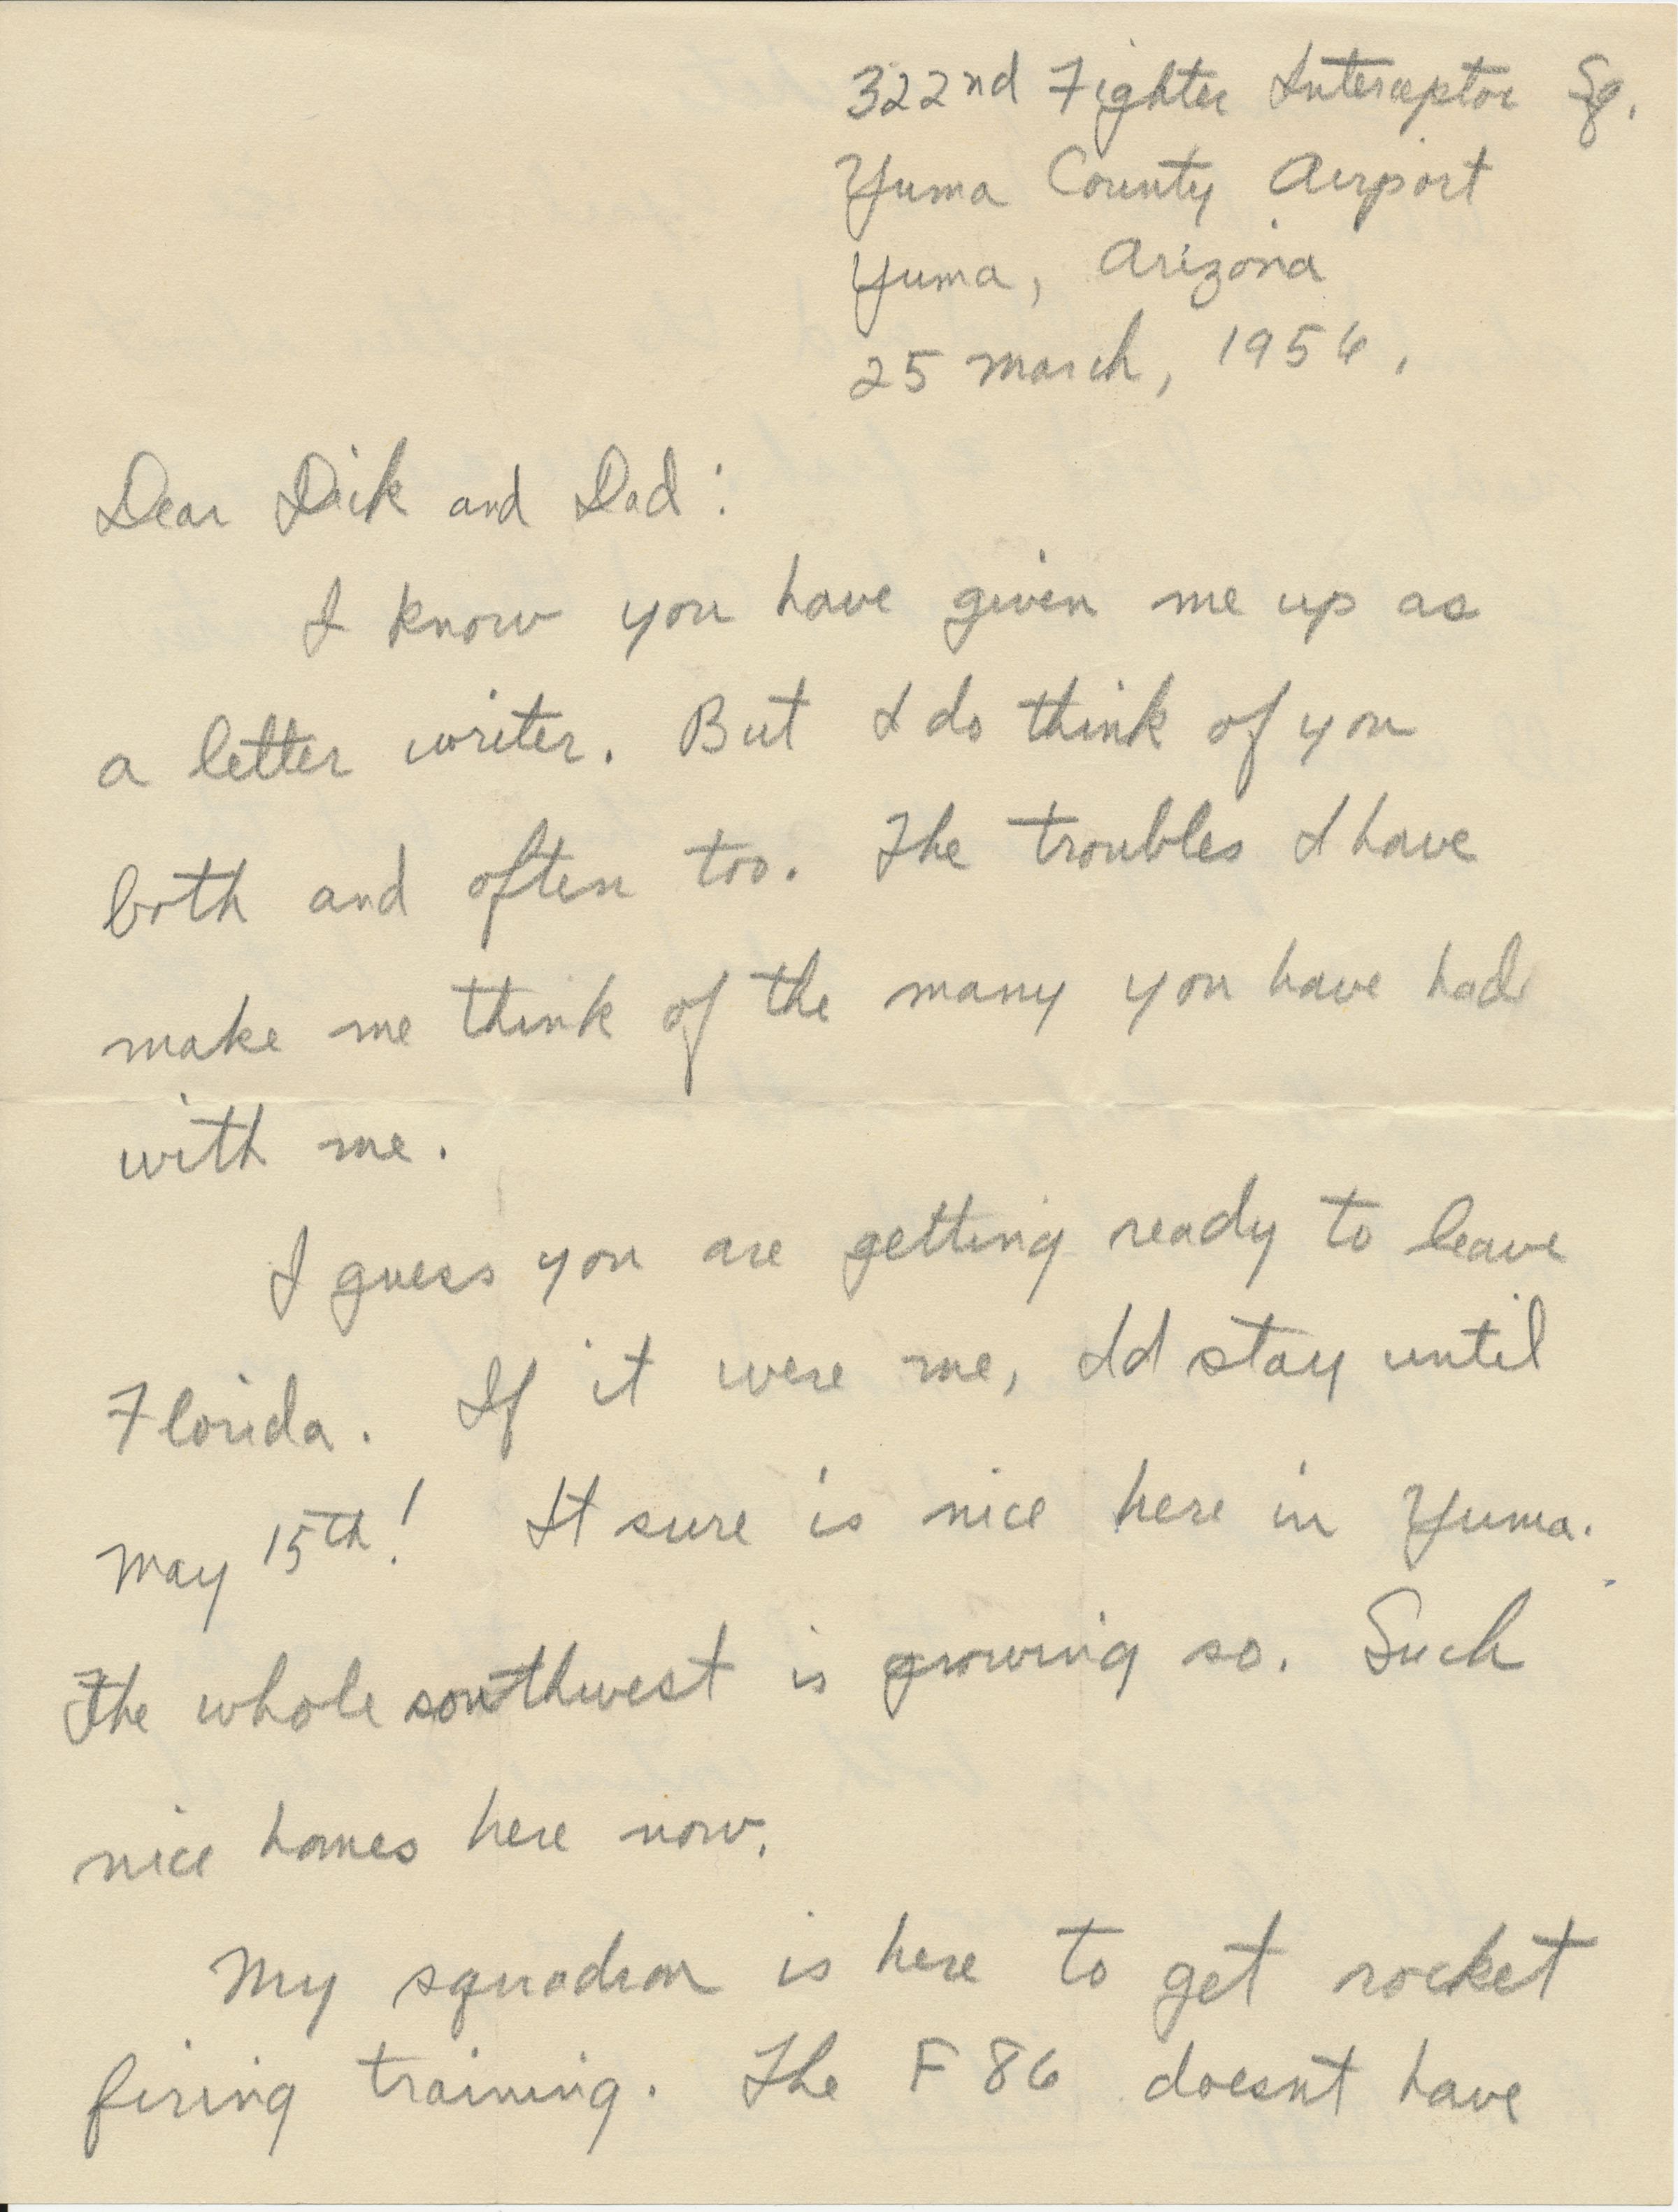 322nd Fighter Interceptor Sq.
Yuma County Airport
Yuma, Arizona
25 March, 1956.
Dear Dick and Dad:
I know you have given me up as
a letter writer. But I do think of you
both and often too. The troubles I have
make me think of the many you have had
with me.
I guess you are getting ready to leave
Florida. If it were me, Id stay until
May 15th! It sure is nice here in Yuma.
The whole southwest is growing so. Such
nice homes here now.
My squadron is here to get rocket
firing training. The F86 doesnt have